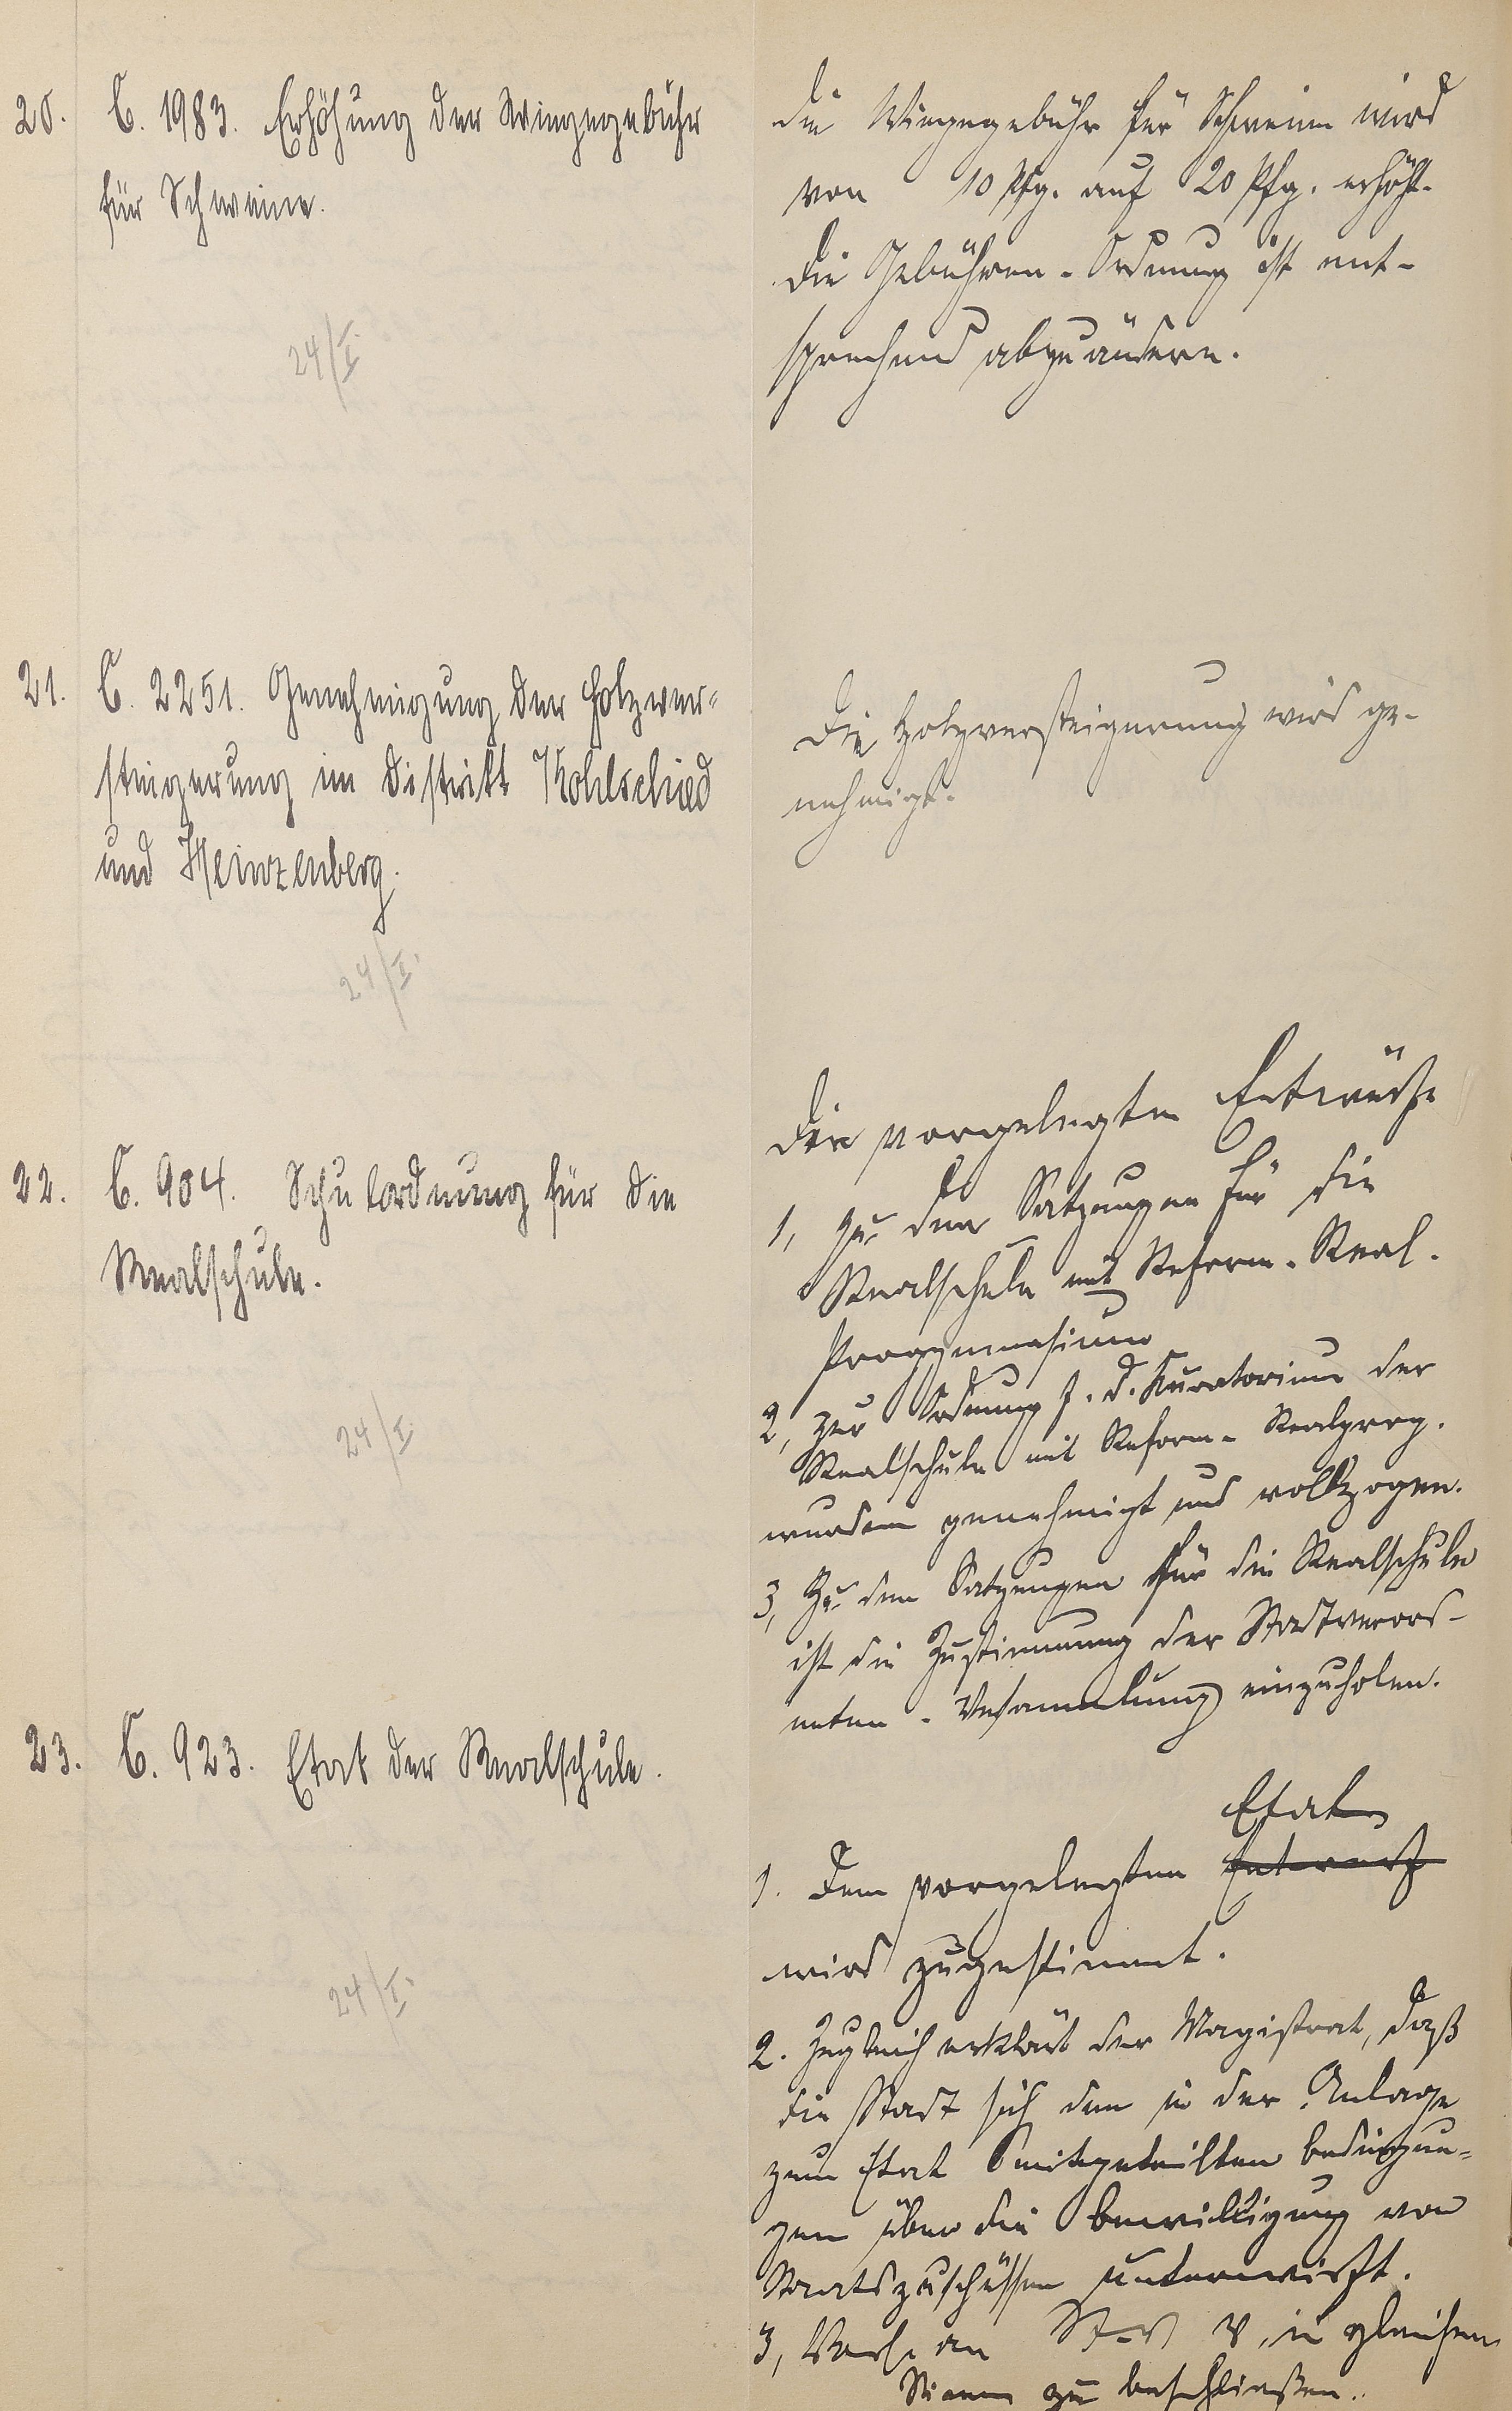 20. C. 1983. Erhöhung der Wiegegebühr
für Schweine.
24/I.
Die Wiegegebühr für Schweine wird
von 10 Pfg. auf 20 Pfg. erhöht.
Die Gebühren-Ordnung ist ent-
sprechend abzuändern.
21. C. 2251. Genehmigung der Holzver-
steigerung im Distrikt Kohlschied
und Heinzenberg.
24/I.
Die Holzversteigerung wird ge-
nehmigt.
22. C. 904. Schulordnung für die
Realschule.
24/I.
Die vorgelegten Entwürfe
1, Zu den Satzungen für die
Realschule mit Reform-Real-
Progymnasium
2, zur Ordnung f. d. Kuratorium der
Realschule mit Reform-Realprog.
wurden genehmigt und vollzogen.
3, Zu den Satzungen für die Realschule
ist die Zustimmung der Stadtverord-
neten-Versammlung einzuholen.
23. C. 923. Etat der Realschule.
24/I.
Etat
1. Dem vorgelegten Entwurf
wird zugestimmt.
2. Zugleich erklärt der Magistrat, daß
die Stadt sich den in der Anlage
zum Etat mitgeteilten Bedingun-
gen über die Bewilligung von
Staatszuschüssen unterwirft.
3, Vorl. an St.-V. V., in gleichem
Sinne zu beschließen.